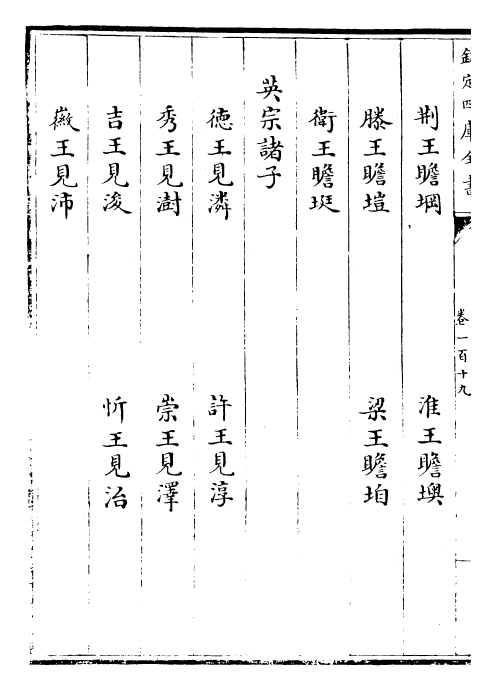 欽定四庫全書
卷一百十九
荆王瞻堈
淮王瞻墺
滕王瞻塏
梁王瞻垍
衛王瞻埏
英宗諸子
徳王見潾
許王見淳
秀王見澍
崇王見澤
吉王見浚
忻王見治
徽王見沛